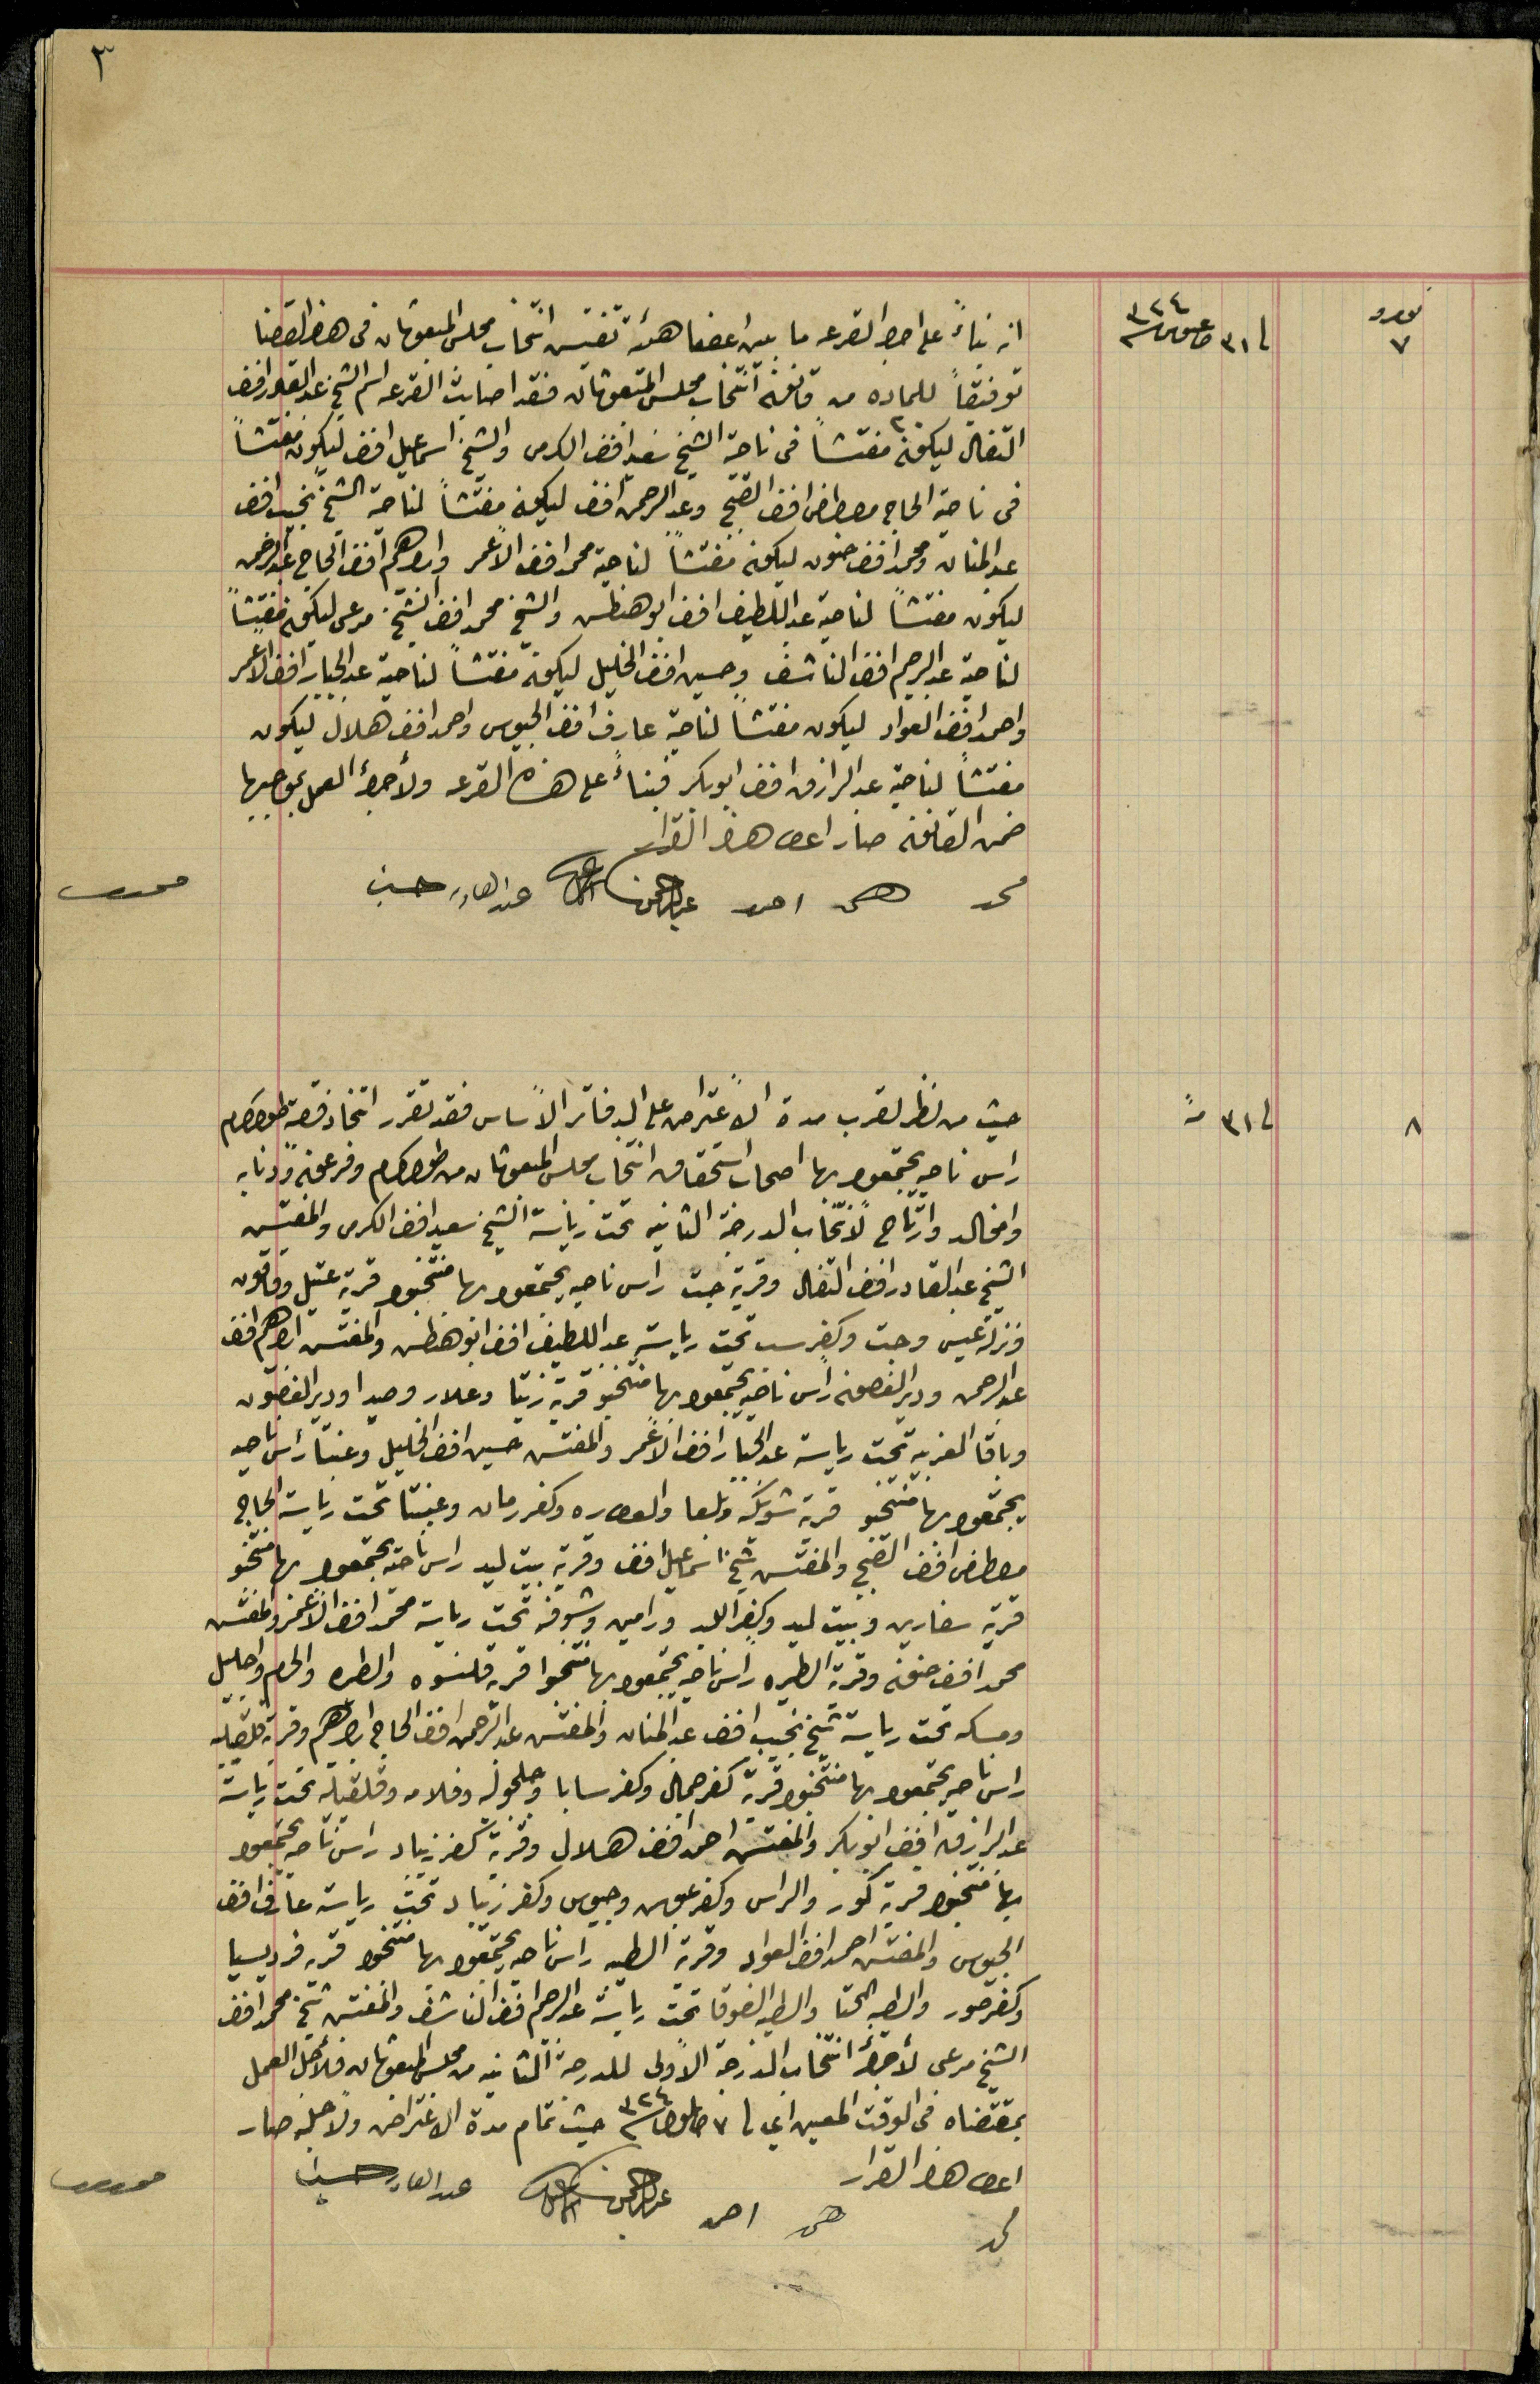 ٣
نومرو
٧
في ٣١ اغسطوس ٣٢٤
انه بناءً على اجراء القرعه ما بين اعضا هيئة تفتيش انتخاب مجلس المبعوثان في هذا القضا
توفيقاً للماده من قانون انتخاب مجلس المبعوثان فقد اصابت القرعه اسم الشيخ عبد القادر افندي
التفال ليكون مفتشاً في ناحية الشيخ سعيد افندي الكرمي والشيخ اسماعيل افندي ليكون مفتشاً
في ناحية الحاج مصطفى افندي الفتح وعبد الرحمن افندي ليكون مفتشاً لناحية الشيخ نجيب افندي
عبد المنان ومحمد افندي حنون ليكون مفتشاً لناحية محمد افندي الاعمر وابراهيم افندي الحاج عبد الرحمن
ليكون مفتشاً لناحية عبد اللطيف افندي ابو هنطش والشيخ محمد افندي الشيخ مرعي ليكون مفتشاً
لناحية عبد الرحيم افندي الناشف وحسين افندي الخليل ليكون مفتشاً لناحية عبد الجبار افندي الاعمر
واحمد افندي العواد ليكون مفتشاً لناحية عارف افندي الجيوسي واحمد افندي هلال ليكون
مفتشاً لناحية عبد الرازق افندي ابو بكر فبناءً على هذه القرعه ولأجراء العمل بموجبها
ضمن القانون صار اعطا هذا القرار
محمد احمد عبد الرحمن عبد القادر حسين
٨
في ٣١ منه
حيث من نظر لقرب مدة الأعتراض على الدفاتر الأساس فقد تقرر اتخاذ قصبة طولكرم
راس ناحيه يجتمعوا بها اصحاب استحقاق انتخاب مجلس المبعوثان من طولكرم وفرعون ودنابه
وام خالد وارتاح لأنتخاب الدرجة الثانيه تحت رياسة الشيخ سعيد افندي الكرمي والمفتش
الشيخ عبد القادر افندي التفال وقرية جت راس ناحيه يجتمعوا بها منتخبوا قرية عتيل وقاقون
ونزلة عيسى وجت وكفر سب تحت رياسة عبد اللطيف افندي ابو هنطش والمفتش ابراهيم افندي
عبد الرحمن ودير الغصون راس ناحيه يجتمعوا بها منتخبو قرية زيتا وعلار وصيدا ودير الغصون
وباقا الغربيه تحت رياسة عبد الجبار افندي الأعمر والمفتش حسين افندي الخليل وعنبتا راس ناحيه
يجتمعوا بها منتخبو قرية شويكه وبلعا والعطاره وكفر رمان وعنبتا تحت رياسة الحاج
مصطفى افندي الفتح والمفتش شيخ اسماعيل افندي وقرية بيت ليد راس ناحيه يجتمعوا بها منتخبو
قرية سفارين وبيت ليد وكفر اللبد ورامين وشوفه تحت رياسة محمد افندي الأعمر والمفتش
محمد افندي حنون وقرية الطيره راس ناحيه يجتمعوا بها منتخبوا قرية قلنسوه والطيره والحرم واجليل
ومسكه تحت رياسة شيخ نجيب افندي عبد المنان والمفتش عبد الرحمن افندي الحاج ابراهيم وقرية قلقيليه
راس ناحيه يجتمعوا بها منتخبوا قرية كفر جمال وكفر سابا وجلجوله وفلامه وقلقيليه تحت رياسة
عبد الرازق افندي ابو بكر والمفتش احمد افندي هلال وقرية كفر زيباد راس ناحيه يجتمعوا
بها منتخبوا قرية كور والراس وكفر عبوش وجيوس وكفر زيباد تحت رياسة عارف افندي
الجيوسي والمفتش احمد افندي العواد وقرية الطيبه راس ناحيه يجتمعوا بها منتخبوا قرية فرديسيا
وكفر صور والطيبه التحتا والطيبه الفوقا تحت رياسة عبد الرحيم افندي الناشف والمفتش شيخ محمد افندي
الشيخ مرعي لأجراء انتخاب الدرجة الأولى للدرجة الثانيه من مجلس المبعوثان فلأجل العمل
بمقتضاه في الوقت المعين اي في ٧ ايلول ٣٢٤ حيث تمام مدة الاعتراض ولأجله صار
اعطا هذا القرار
محمد احمد عبد الرحمن عبد القادر حسين